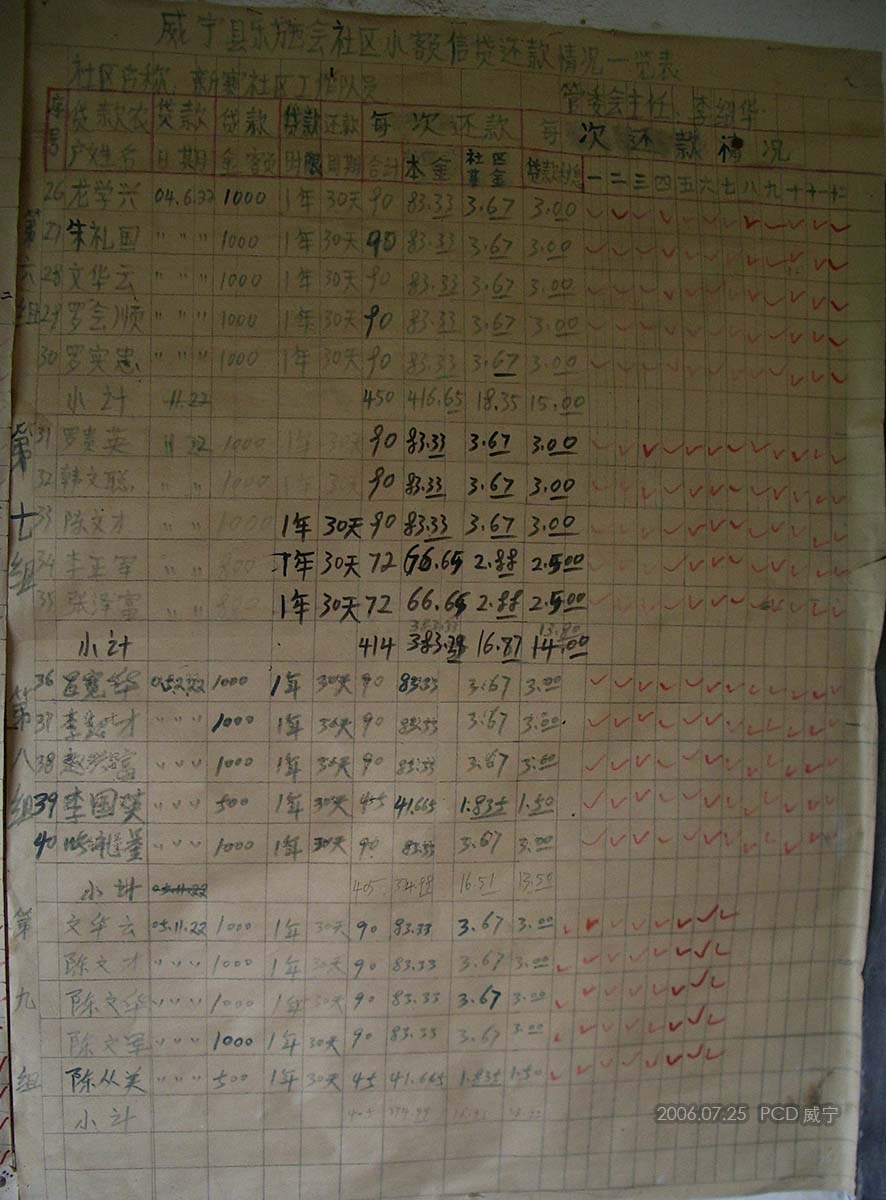 威宁县乐施会社区小额信贷还款情况一览表
社区名称：新寨社区工作队员 管委会主任：李绍华
序号 贷款农户姓名 贷款日期 贷款金额 贷款期限 还款周期 每次还款 每次还款情况
合计 本金 社区基金 一 二 三 四 五 六 七 八 九 十 十一 十二
第六组
26 龙学兴 04.6.22 1000 1年 30天 90 83.33 3.67 3.00 ✓ ✓ ✓ ✓ ✓ ✓ ✓ ✓ ✓ ✓ ✓ ✓
27 朱礼国 〃 〃 〃 1000 1年 30天 90 83.33 3.67 3.00 ✓ ✓ ✓ ✓ ✓ ✓ ✓ ✓ ✓ ✓ ✓ ✓
28 文华云 〃 〃 〃 1000 1年 30天 90 83.33 3.67 3.00 ✓ ✓ ✓ ✓ ✓ ✓ ✓ ✓ ✓ ✓ ✓ ✓
29 罗会顺 〃 〃 〃 1000 1年 30天 90 83.33 3.67 3.00 ✓ ✓ ✓ ✓ ✓ ✓ ✓ ✓ ✓ ✓ ✓ ✓
30 罗实忠 〃 〃 〃 1000 1年 30天 90 83.33 3.67 3.00 ✓ ✓ ✓ ✓ ✓ ✓ ✓ ✓ ✓ ✓ ✓ ✓
小计 11.22 450 416.65 18.35 15.00
第七组
31 罗贵英 11 22 1000 1年 30天 90 83.33 3.67 3.00 ✓ ✓ ✓ ✓ ✓ ✓ ✓ ✓ ✓ ✓ ✓ ✓
32 韩文聪 〃 〃 1000 1年 30天 90 83.33 3.67 3.00 ✓ ✓ ✓ ✓ ✓ ✓ ✓ ✓ ✓ ✓ ✓ ✓
33 陈文才 〃 〃 1000 1年 30天 90 83.33 3.67 3.00 ✓ ✓ ✓ ✓ ✓ ✓ ✓ ✓ ✓ ✓ ✓ ✓
34 李 军 〃 〃 800 1年 30天 72 66.65 2.88 2.500 ✓ ✓ ✓ ✓ ✓ ✓ ✓ ✓ ✓ ✓ ✓ ✓
35 张泽富 〃 〃 800 1年 30天 72 66.65 2.88 2.500 ✓ ✓ ✓ ✓ ✓ ✓ ✓ ✓ ✓ ✓ ✓ ✓
小计 414 16.87 14.00
第八组
36 宽华 1000 1年 30天 90 83.33 3.67 3.00 ✓ ✓ ✓ ✓ ✓ ✓ ✓ ✓ ✓ ✓ ✓ ✓
37 李 才 〃 〃 〃 1000 1年 30天 90 83.33 3.67 3.00 ✓ ✓ ✓ ✓ ✓ ✓ ✓ ✓ ✓ ✓ ✓ ✓
38 赵 富 〃 〃 〃 1000 1年 30天 90 83.33 3.67 3.00 ✓ ✓ ✓ ✓ ✓ ✓ ✓ ✓ ✓ ✓ ✓ ✓
39 李国英 〃 〃 〃 500 1年 30天 45 41.665 1.835 1.50 ✓ ✓ ✓ ✓ ✓ ✓ ✓ ✓ ✓ ✓ ✓ ✓
40 1000 1年 30天 90 83.33 3.67 3.00 ✓ ✓ ✓ ✓ ✓ ✓ ✓ ✓ ✓ ✓ ✓ ✓
小计 05.11.22 405 374.98 16.51 13.50
第九组
文华云 05.11.22 1000 1年 30天 90 83.33 3.67 3.00 ✓ ✓ ✓ ✓ ✓ ✓ ✓ ✓
陈文才 〃 〃 〃 1000 1年 30天 90 83.33 3.67 3.00 ✓ ✓ ✓ ✓ ✓ ✓ ✓ ✓
陈文华 〃 〃 〃 1000 1年 30天 90 83.33 3.67 3.00 ✓ ✓ ✓ ✓ ✓ ✓ ✓ ✓
陈文军 1000 1年 30天 90 83.33 3.67 3.00 ✓ ✓ ✓ ✓ ✓ ✓ ✓ ✓
陈从美 〃 〃 〃 500 1年 30天 45 41.665 1.835 1.50 ✓ ✓ ✓ ✓ ✓ ✓ ✓ ✓
小计
2006.07.25 PCD 威宁